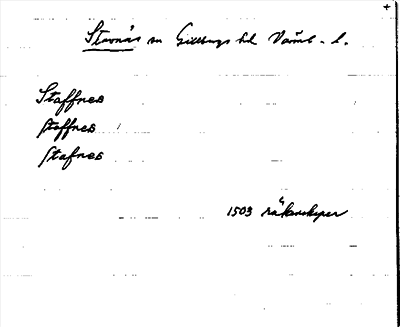 Stavnäs sn Gillbergs hd Värml. l.
Staffnes
staffnes
stafnes
1503 räkenskaper